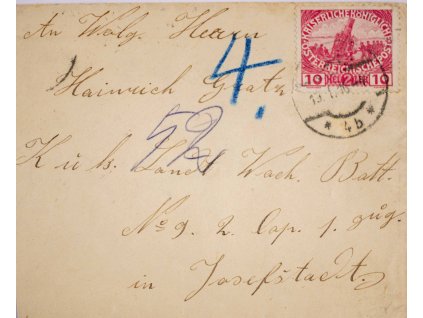 An Wolg. Herrn
4.
Heinrich Gratz
52
K u k. Land Wach. Batt.
No 9. 2. Cap. 1. Zůg.
in Josefstadt.
KAISERLICHE KÖNIGLICHE
ÖSTERREICHISCHE POST
10 HELLER 10
* 4b *